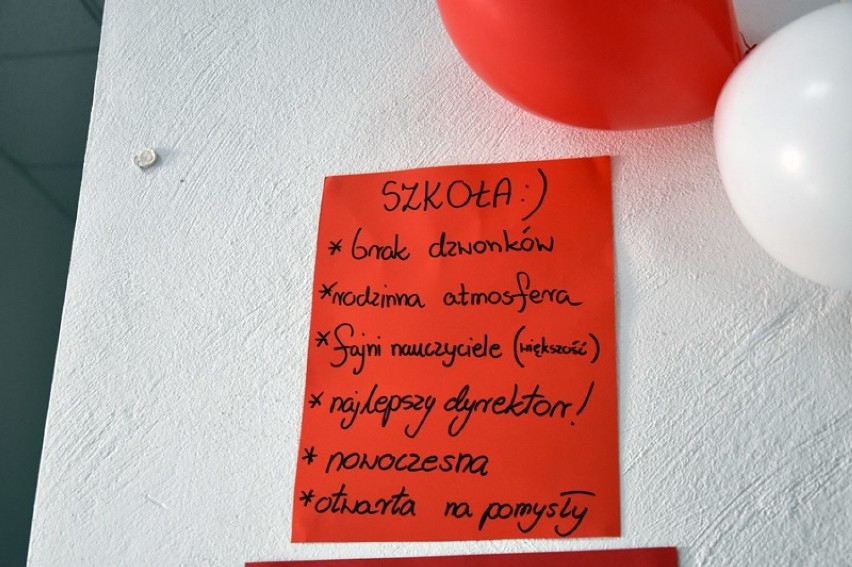 SZKOŁA :)
* brak dzwonków
* rodzinna atmosfera
* fajni nauczyciele (większość)
* najlepszy dyrektor!
* nowoczesna
* otwarta na pomysły